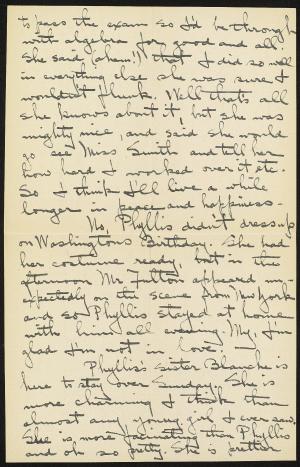 to pass the exam so I'd be through
with algebra for good and all!
She said, ahem!! that I did so well
in everything else she was sure I
wouldn't flunk. Well that's all
she knows about it, but she was
mighty nice, and said she would
go see Miss Smith and tell her
how hard I worked over it etc.
So I think I'll live a while
longer in peace and happiness-
No, Phyllis didn't dress up
on Washington's Birthday. She had
her costume ready, but in the
afternoon Mr. Fulton appeared un-
expectedly on the scene from New York
and so Phyllis stayed at home
with him all evening. My, I'm
glad I'm not in love. —
Phyllis's sister Blanche is
here to stay over Sunday. She is
more charming I think than
almost any young girl I ever saw.
She is more fascinating than Phyllis
and oh so pretty. She is prettier